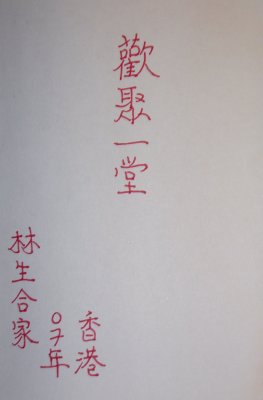 歡聚一堂
香港
07年
林生合家